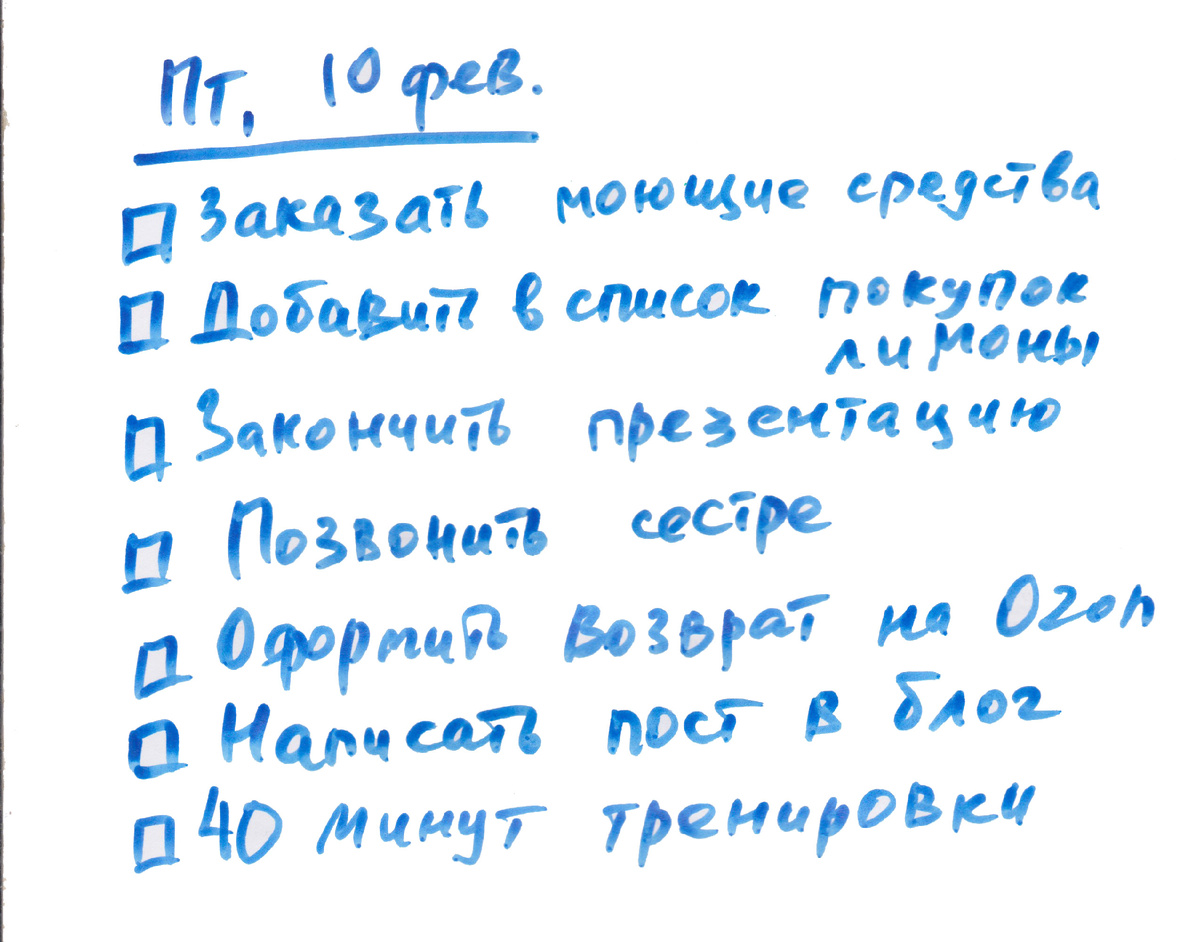 Пт, 10 фев.
Заказать моющие средства
Добавить в список покупок
лимоны
Закончить презентацию
Позвонить сестре
Оформить возврат на Ozon
Написать пост в блог
40 минут тренировки